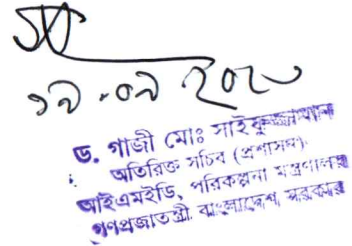 ১৯.০৯.২০২০
ড. গাজী মোঃ সাইফুজ্জামান
অতিরিক্ত সচিব (প্রশাসন)
আইএমইডি, পরিকল্পনা মন্ত্রণালয়
গণপ্রজাতন্ত্রী বাংলাদেশ সরকার